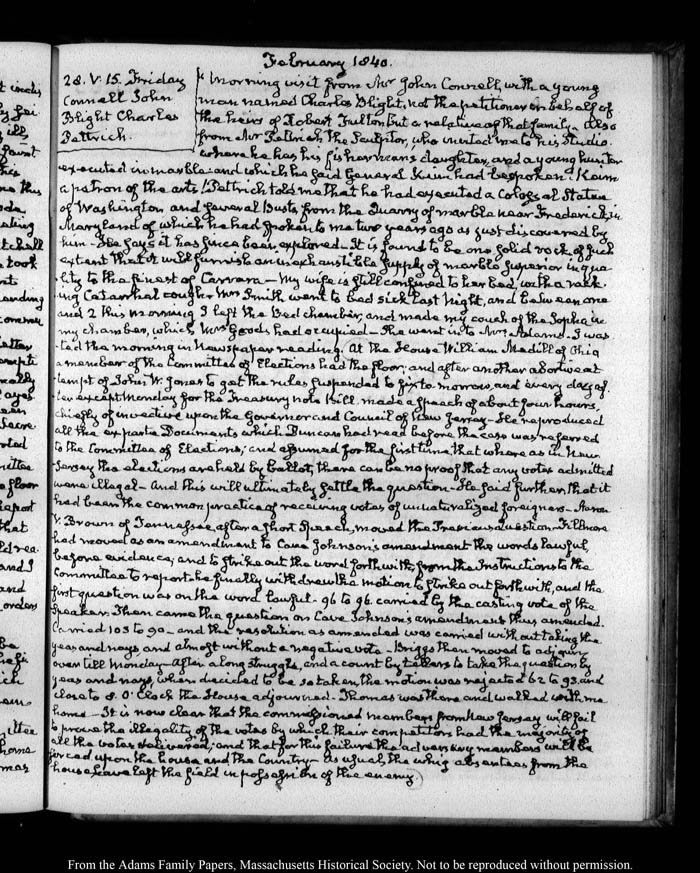 February 1840.
28. V:15. Friday
Connell John
Blight Charles
Pettrich.
Morning visit from Mr John Connell, with a young
man named Charles Blight, not the petitioner in behalf of
the heirs of Robert Fulton but a relative of that family. Also
from Mr Pettrich, the Sculptor, who invited me to his Studio
where he has his fisherman's daughter, and a young hunter
executed in marble and which he said General Keim had bespoken. Keim
a patron of the arts! Pettrich told me that he had executed a Colossal Statue
of Washington and several Busts from the Quarry of marble near Frederick in
Maryland of which he had spoken to me two years ago as just discovered by
him - He says it has since been explored - It is found to be one solid rock of such
extent that it will furnish an inexhaustible supply of marble superior in qua-
lity to the finest of Carrara - My wife is still confined to her bed, with a rack-
ing Catarrhal cough. Mrs Smith went to bed sick last Night, and between one
and 2 this morning I left the Bed chamber, and made my couch of the Sopha in
my chamber, which Mrs Goods had occupied - She went in to Mrs Adams. I was-
ted the morning in Newspaper reading. At the House William Medill of Ohio
a member of the Committee of Elections had the floor; and after another abortive at-
tempt of John W. Jones to get the rules suspended to fix to morrow, and every day af-
ter except Monday for the Treasury note Bill, made a speech of about four hours,
chiefly of invective upon the Governor and Council of New Jersey - He reproduced
all the ex parte Documents which Duncan had read before the case was referred
to the Committee of Elections; and assumed for the first time that where as in New
Jersey the elections are held by ballot, there can be no proof that any votes admitted
were illegal - And this will ultimately settle the question - He said further that it
had been the common practice of receiving votes of unnaturalized foreigners - Aaron
V. Brown of Tennessee, after a short Speech, moved the Previous question - Fillmore
had moved as an amendment to Cave Johnson's amendment the words lawful,
before evidence; and to strike out the word forthwith, from the Instructions to the
Committee to report - he finally withdrew the motion to strike out forthwith, and the
first question was on the word lawful - 96 to 96 carried by the casting vote of the
Speaker. Then came the question on Cave Johnson's amendment thus amended.
Carried 103 to 90 - and the resolution as amended was carried without taking the
yeas and nays and almost without a negative vote - Briggs then moved to adjourn
over till Monday - After a long struggle, and a count by tellers to take the question by
yeas and nays, when decided to be so taken, the motion was rejected 62 to 93. and
close to 8. O'Clock the House adjourned - Thomas was there and walked with me
home - It is now clear that the commissioned members from New Jersey will fail
to prove the illegality of the votes by which their competitors had the majority of
all the votes delivered; and that for this failure the adversary members will be
forced upon the house and the Country - As usual, the whig absentees from the
house have left the field in possession of the enemy.
From the Adams Family Papers, Massachusetts Historical Society. Not to be reproduced without permission.